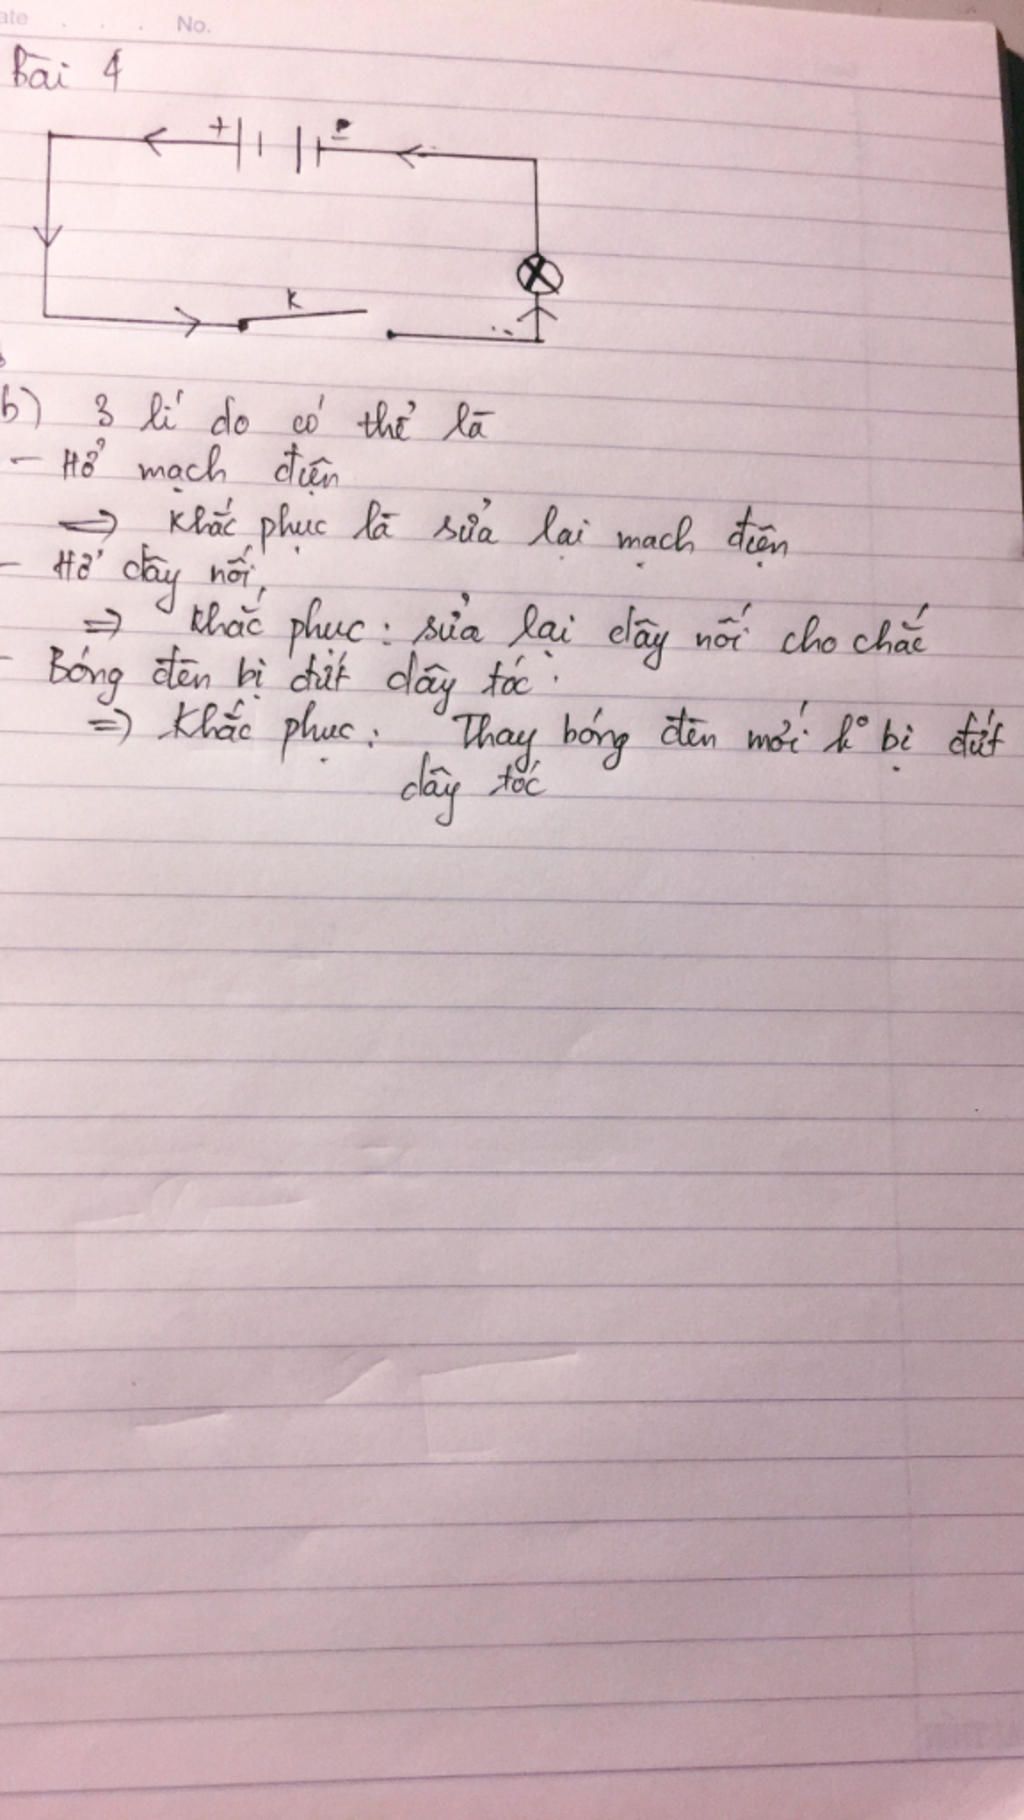 ate . . . No.
Bài 4
+ -
K
b) 3 lí do có thể là
- Hở mạch điện
⇒ Khắc phục là sửa lại mạch điện
- Hở dây nối,
⇒ Khắc phục: sửa lại dây nối cho chắc
- Bóng đèn bị đứt dây tóc.
⇒ Khắc phục: Thay bóng đèn mới k° bị đứt
dây tóc